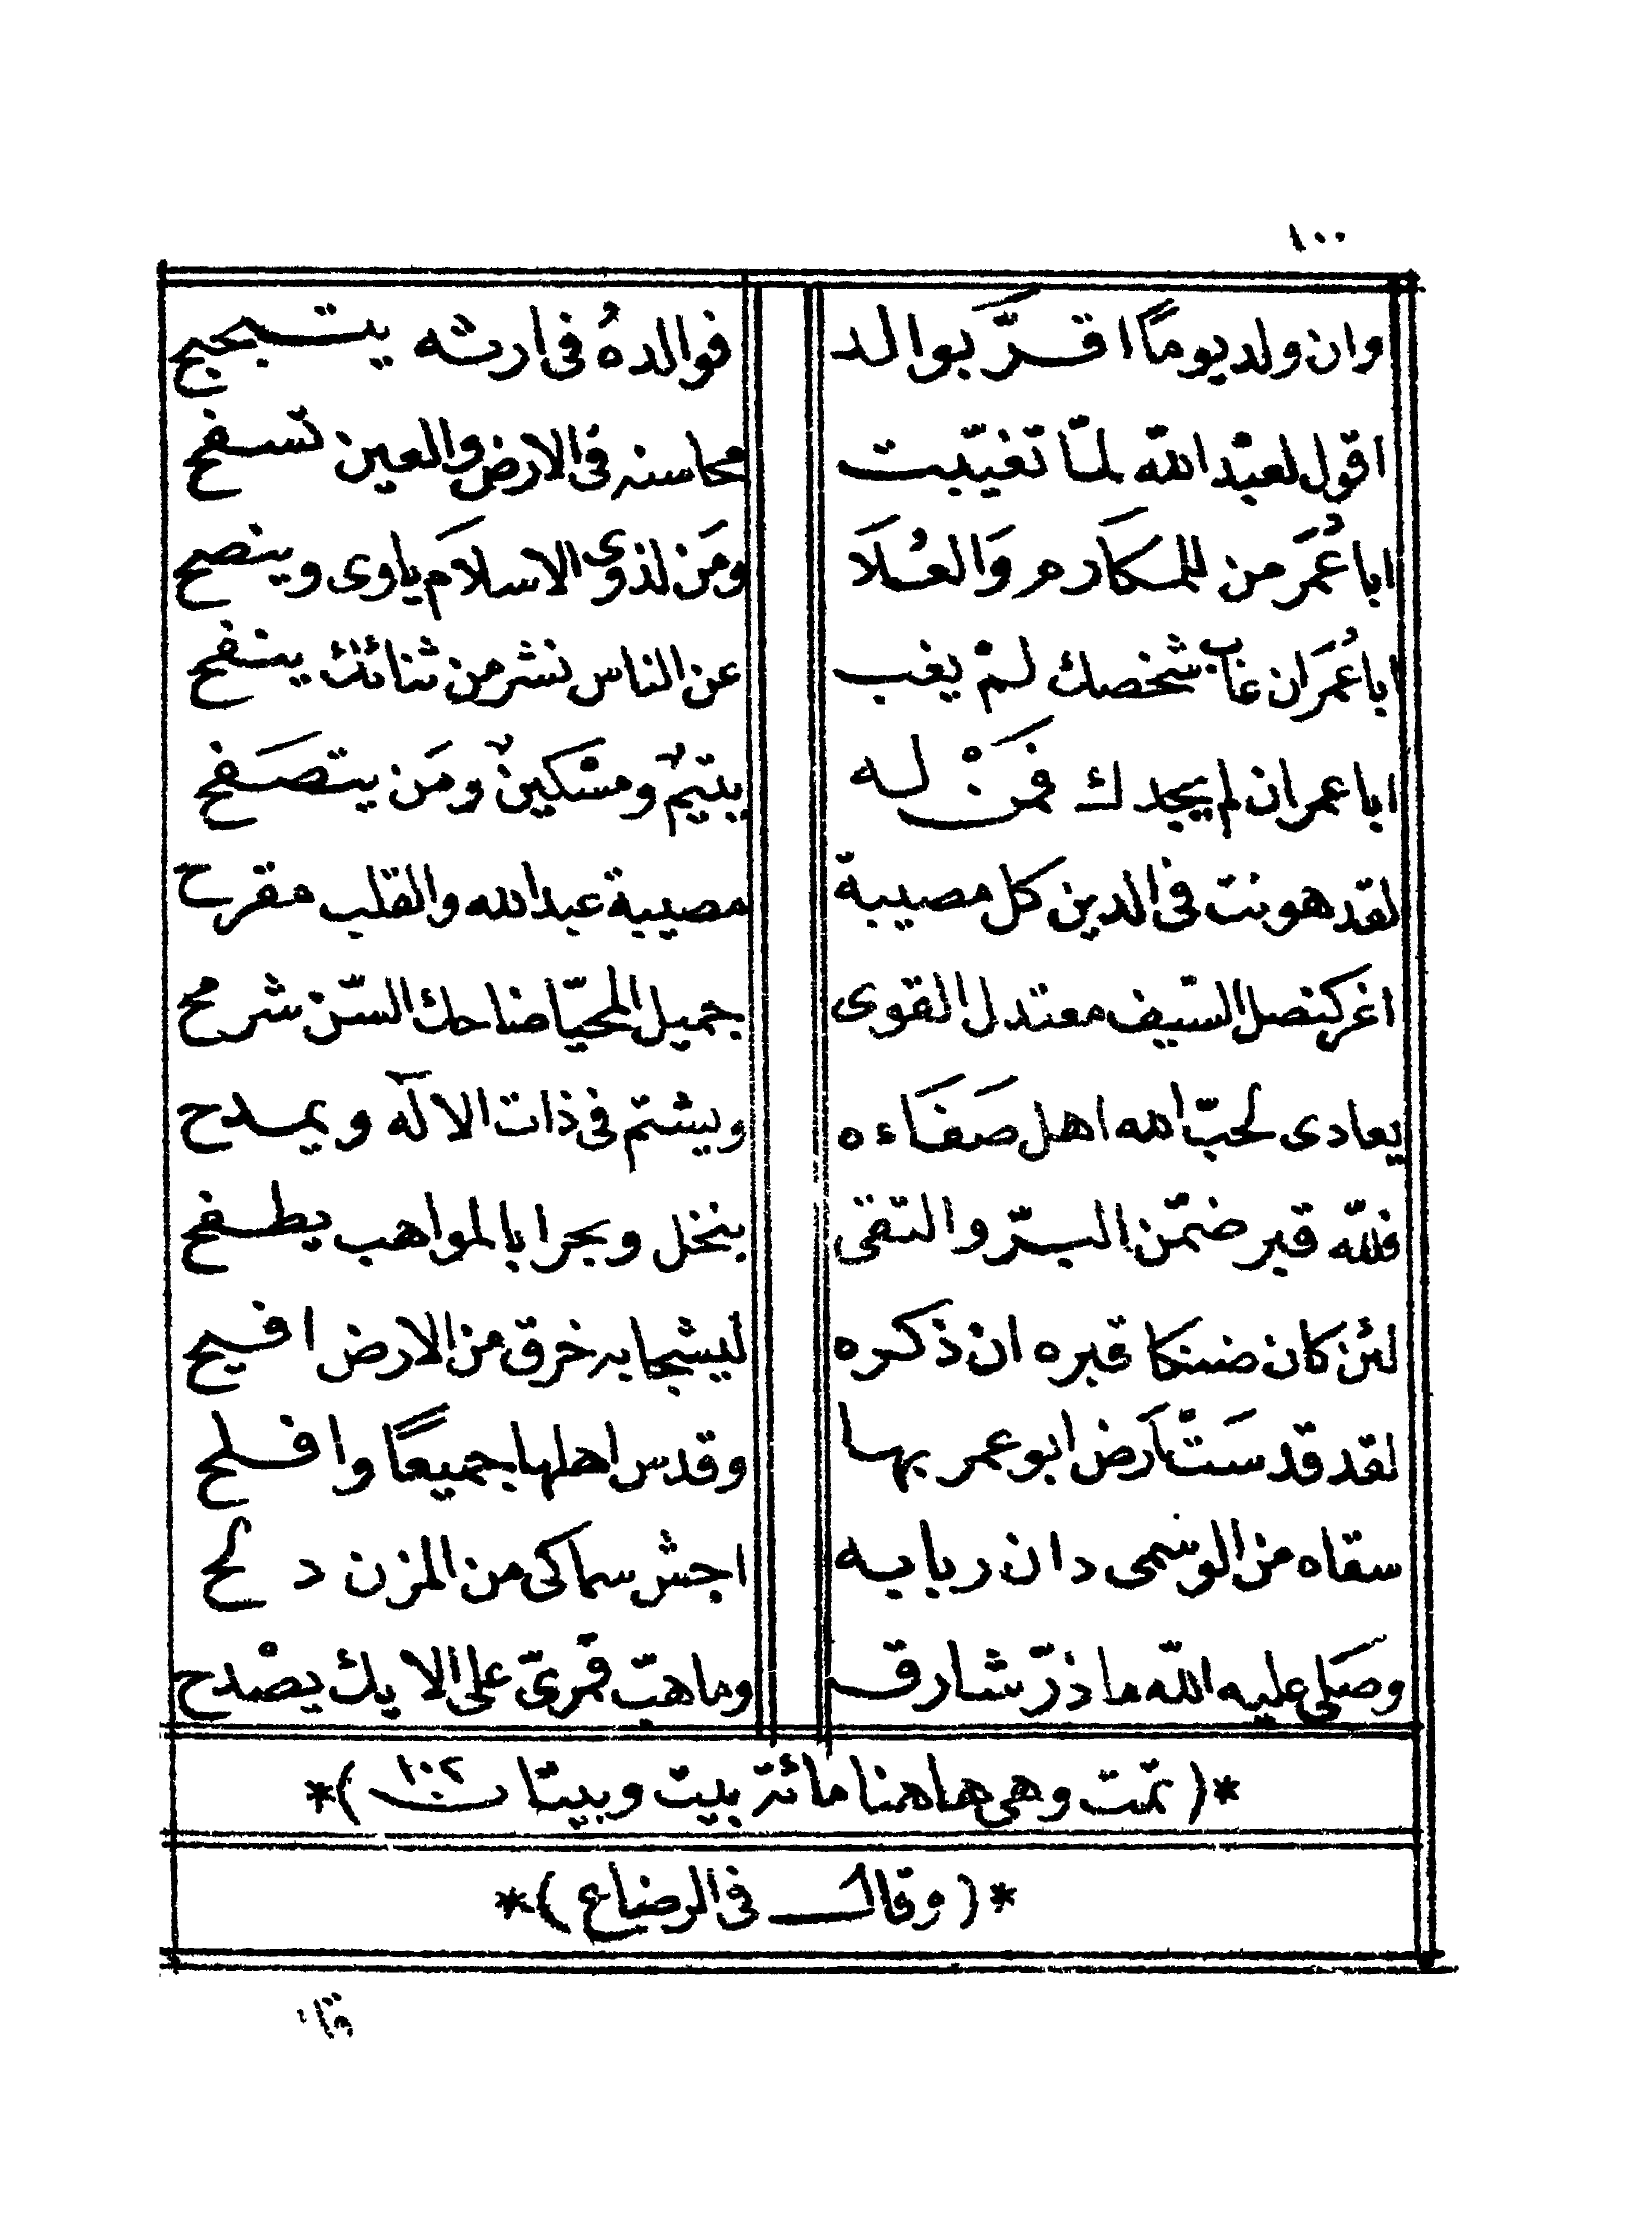 ١٠٠
وان ولد يومًا اقرّ بوالد فوالدهُ فى ارثه يتبحبح
اقول لعبْد اللّه لمّا تغيّبت محاسنه فى الارض والعين تسفح
ابا عُمَر من للمكارم وَالعُلَا ومَن لذوى الاسلام ياوى وينصح
ابا عُمَر ان غاب شخصك لمْ يغب عن الناس نشر من ثنائك ينفح
ابا عمر ان لم يجدك فمَنْ له يتيمٌ ومسْكينٌ ومَن يتصَفح
لقد هونت فى الدين كل مصيبة مصيبة عبد الله والقلب مقرح
اغر كنصل السّيف معتدل القوى جميل المحيّا ضاحك السّن شرمح
يعادى لحبّ الله اهل صفَاءه ويشتم فى ذات الاله ويمدح
فللّه قبر ضمّن البرّ والتقى بنخل وبحرا بالمواهب يطفح
لئن كان ضنكا قبره ان ذكره ليشجا به خرق من الارض افيح
لقد قدسَتْ ارض ابو عمر بها وقدس اهلها جميعًا وافلح
سقاه من الوسمى دان ربابه اجش سماكى من المزن دلح
وصَلى عليه اللّه ما ذرّ شارق وما هبّ قمْرىّ على الايك يصْدح
*( تمّت وهى هاهنا مائة بيت وبيتان ١٠٢ )*
*( وقال فى الرضاع )*